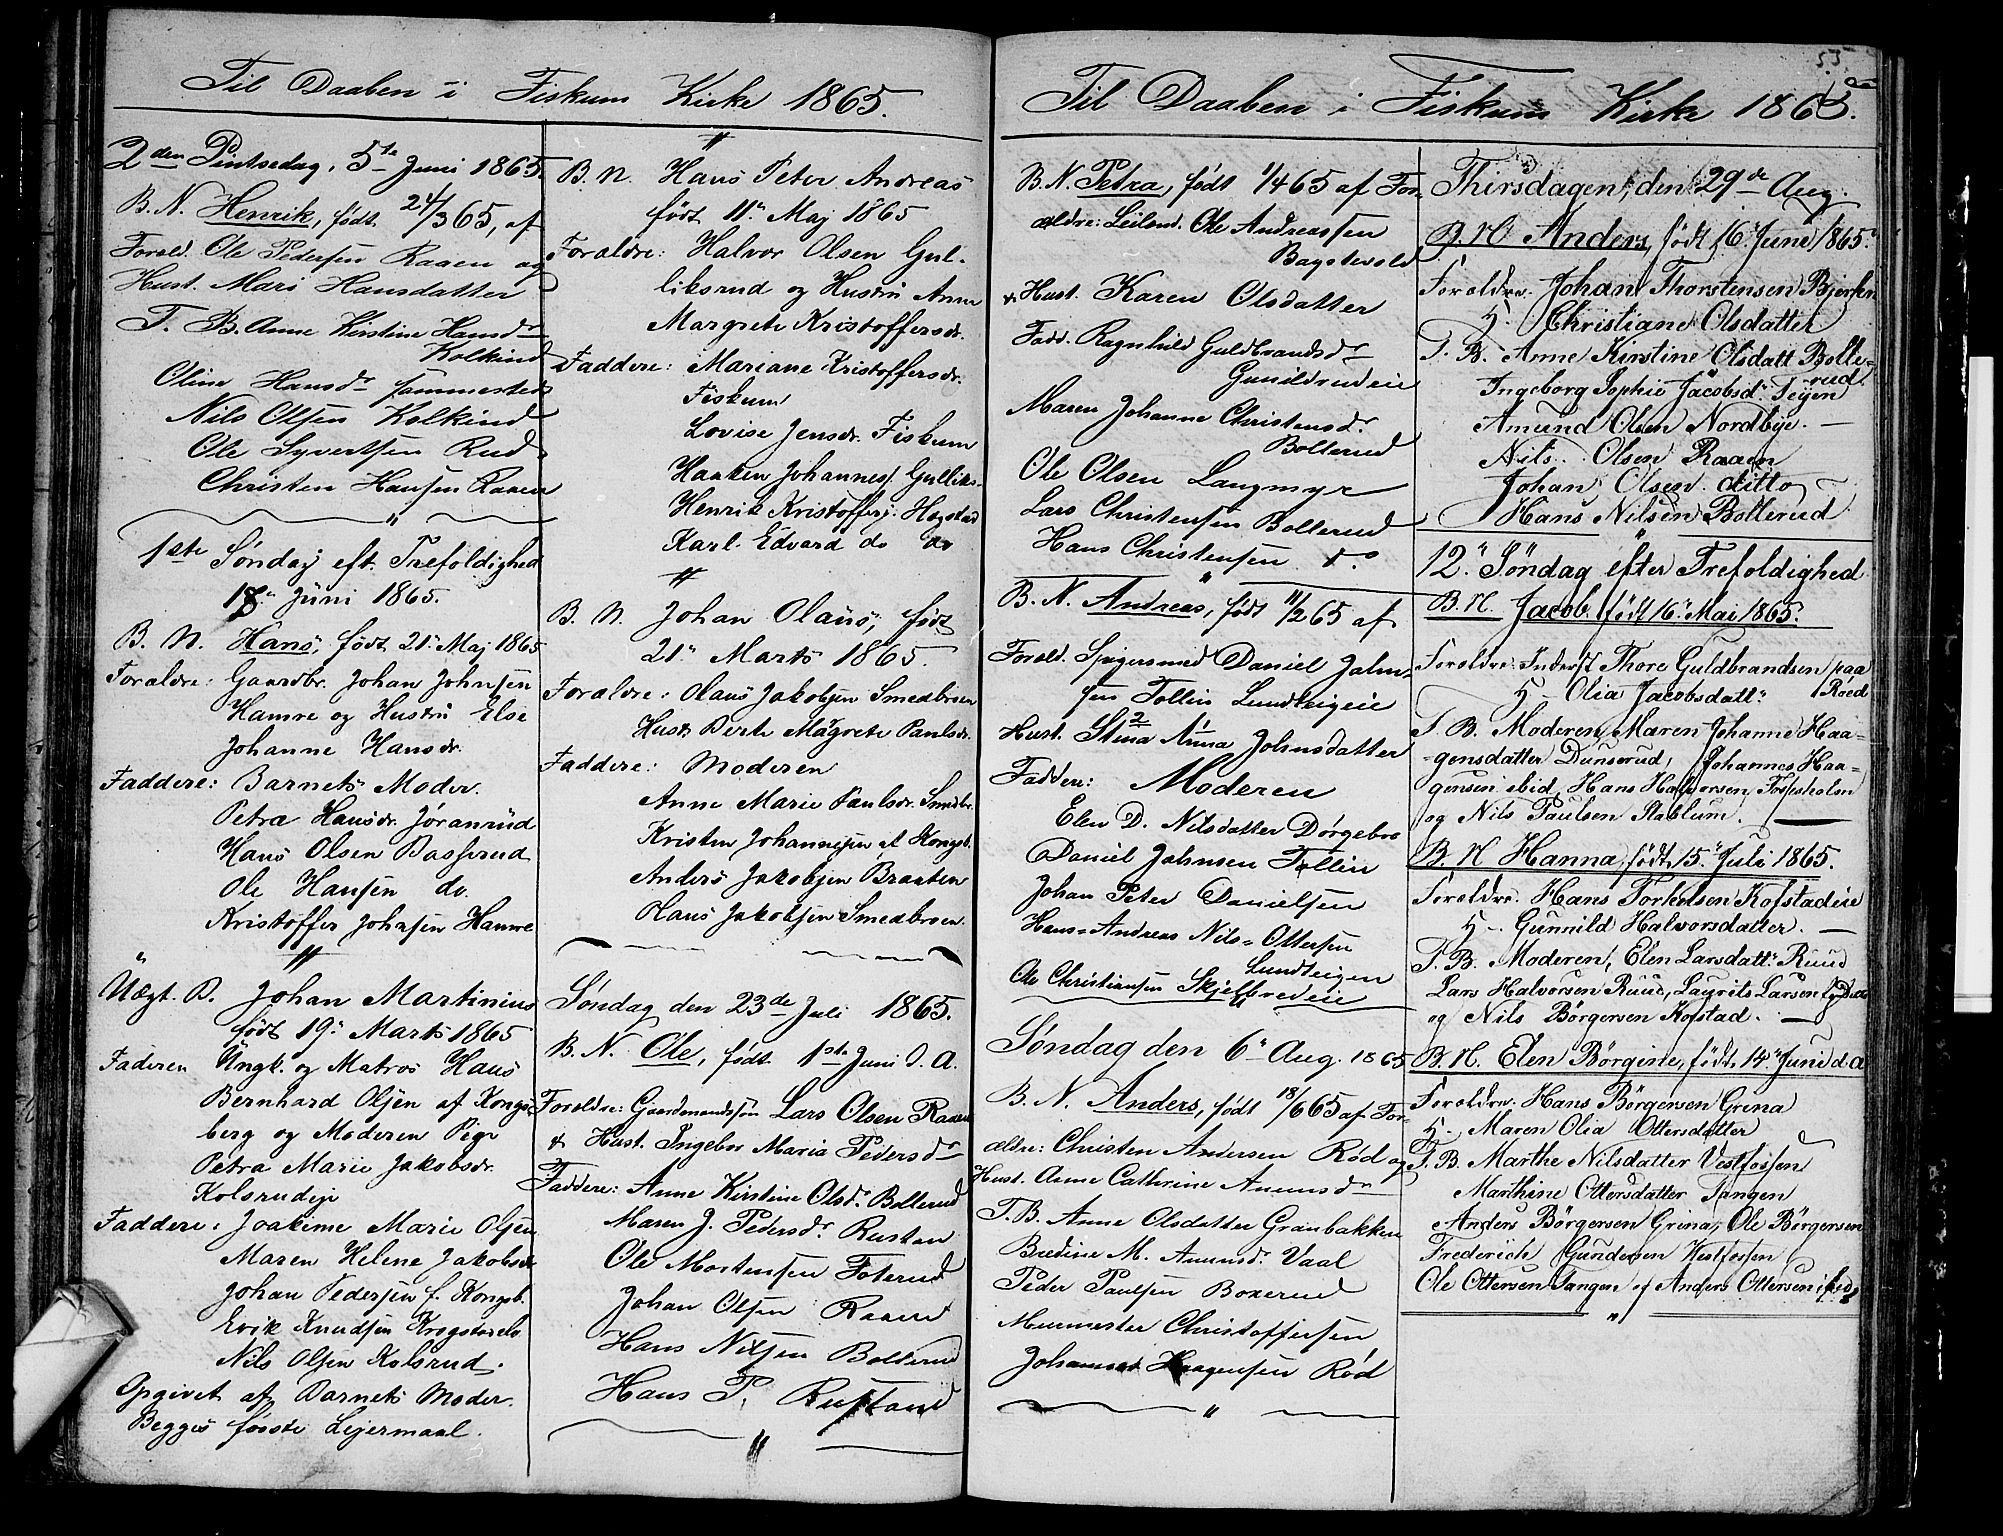 Til Daaben i Fiskum Kirke 1865.
2den Pintsedag, 5te Juni 1865.
B. N. Henrik, født 24/3 65, af
Foræld. Ole Pedersen Raaen og
Hust. Mari Hansdatter
T. B. Anne Kirstine Hansdr
Kolkind
Oline Hansdr sammesteds
Nils Olsen Kolkind
Ole Syvertsen Rud
Christen Hansen Raaen
"
1ste Søndag eft. Trefoldighed
18" Juni 1865.
B. N. Hans, født 21" Maj 1865
Foraldre: Gaardbr. Johan Johnsen
Hamre og Hustru Else
Johanne Hansdr.
Faddere: Barnets Moder.
Petra Hansdr. Jøranrud
Hans Olsen Basserud
Ole Hansen do.
Kristoffer Johnsen Hamre
"
Uægt. B. Johan Martinius
født 19" Marts 1865
Faderen Ungk. og Matros Hans
Bernhard Olsen af Kongs-
berg og Moderen Pige
Petra Marie Jakobsdr.
Kolsrudeje
Faddere: Joakime Marie Olsen
Maren Helene Jakobsdr
Johan Pedersen f. Kongsb.
Erik Knudsen
Nils Olsen Kolsrud.
Opgivet af Barnets Moder.
Begges første Lejermaal.
"
B. N. Hans Peter Andreas
født 11" Maj 1865
Foraldre: Halvor Olsen Gul-
liksrud og Hustru Anne
Margrete Kristoffersdr.
Faddere: Mariane Kristoffersdr.
Fiskum
Lovise Jensdr. Fiskum
Haaken Johannes. Gulliks.
Henrik Kristoffersj. Hogstad
Karl Edvard do do
"
B. N. Johan Olaus, født
21" Marts 1865.
Foraldre: Olaus Jakobsen Smedbroen
Hust. Berte Magrete Paulsdr.
Faddere: Moderen
Anne Marie Paulsdr. Smedbr.
Kristen Johannesen af Kongsb.
Anders Jakobsen Braaten
Olaus Jakobsen Smedbroen.
Søndag den 23de Juli 1865.
B. N. Ole, født 1ste Juni d. A.
Foreldre: Gaardmandssøn Lars Olsen Raaen
& Hust. Ingebor Maria Pedersdr
Faddere: Anne Kirstine Olsdr. Bollerud
Maren J. Pedersdr. Rustan
Ole Mortensen Foterud
Johan Olsen Raaen
Hans Nilsen Bollerud
Hans P. Rustand
"
53.
Til Daaben i Fiskum Kirke 1865.
B. N. Petra, født 1/4 65 af For-
ældre: Leilend. Ole Andreassen
Bagstevold
& Hust. Karen Olsdatter
Fadd. Ragnhild Guldbrandsdr
Gunildrudeie
Maren Johanne Christensdr.
Bollerud
Ole Olsen Langmyr
Lars Christensen Bollerud
Hans Christensen do
"
B. N. Andreas, født 11/2 65 af
Foræld. Spigersmed Daniel John-
sen Tollin Lundteigeie
Hust. Stina Anna Johnsdatter
Faddere: Moderen
Elen D. Nilsdatter Dørgebro
Daniel Johnsen Tollin
Johan Peter Danielsen
Hans-Andreas Nils-Ottersen
Lundteigen
Ole Christiansen Skjelbredeie
Søndag den 6" Aug. 1865
B. N. Anders, født 18/6 65 af For-
ældre: Christen Andersen Rød og
Hust. Anne Cathrine Amunsdr
T. B. Anne Olsdatter Granbakken
Bredine M. Amunsd. Vaal
Peder Paulsen Boxerud
Murmester Christoffersen
Johannes Haagensen Rød
"
Thirsdagen, den 29de Aug.
B. N. Anders, født 16" June 1865.
Foreldre. Johan Thorstensen Bjerken
H. Christiane Olsdatter
T. B. Anne Kirstine Olsdatt Bolle-
rud.
Ingeborg Sophie Jacobsdr. Teijen
Amund Olsen Nordbye.
Nils Olsen Raaen
Johan Olsen ditto
Hans Nilsen Bollerud
"
12" Søndag efter Trefoldighed
B. N. Jacob. født 16" Mai 1865.
Foreldre. Inderst Thore Guldbrandsen paa
H. Olia Jacobsdatt. Røed
T. B. Moderen, Maren Johanne Haa-
gensdatter Dunserud, Johannes Haa-
gensen ibid, Hans Halvorsen Fossesholm
og Nils Paulsen Stablum.
B. N. Hanna, født 15" Juli 1865.
Foreldre. Hans Torkelsen Kofstadeie
H. Gunnild Halvorsdatter.
T. B. Moderen, Elen Larsdatt. Ruud
Lars Halvorsen Ruud, Laurits Larsen ditto
og Nils Børgersen Kofstad.
B. N. Elen Børgine, født 14" Juni d. A
Foreldre. Hans Børgersen Grina
H. Maren Olia Ottersdatter
T. B. Marthe Nilsdatter Vestfossen
Marthine Ottersdatter Tangen
Anders Børgersen Grina, Ole Børgersen
Frederich Gundersen Vestfossen
Ole Ottersen Tangen og Anders Ottersen ibid.
"